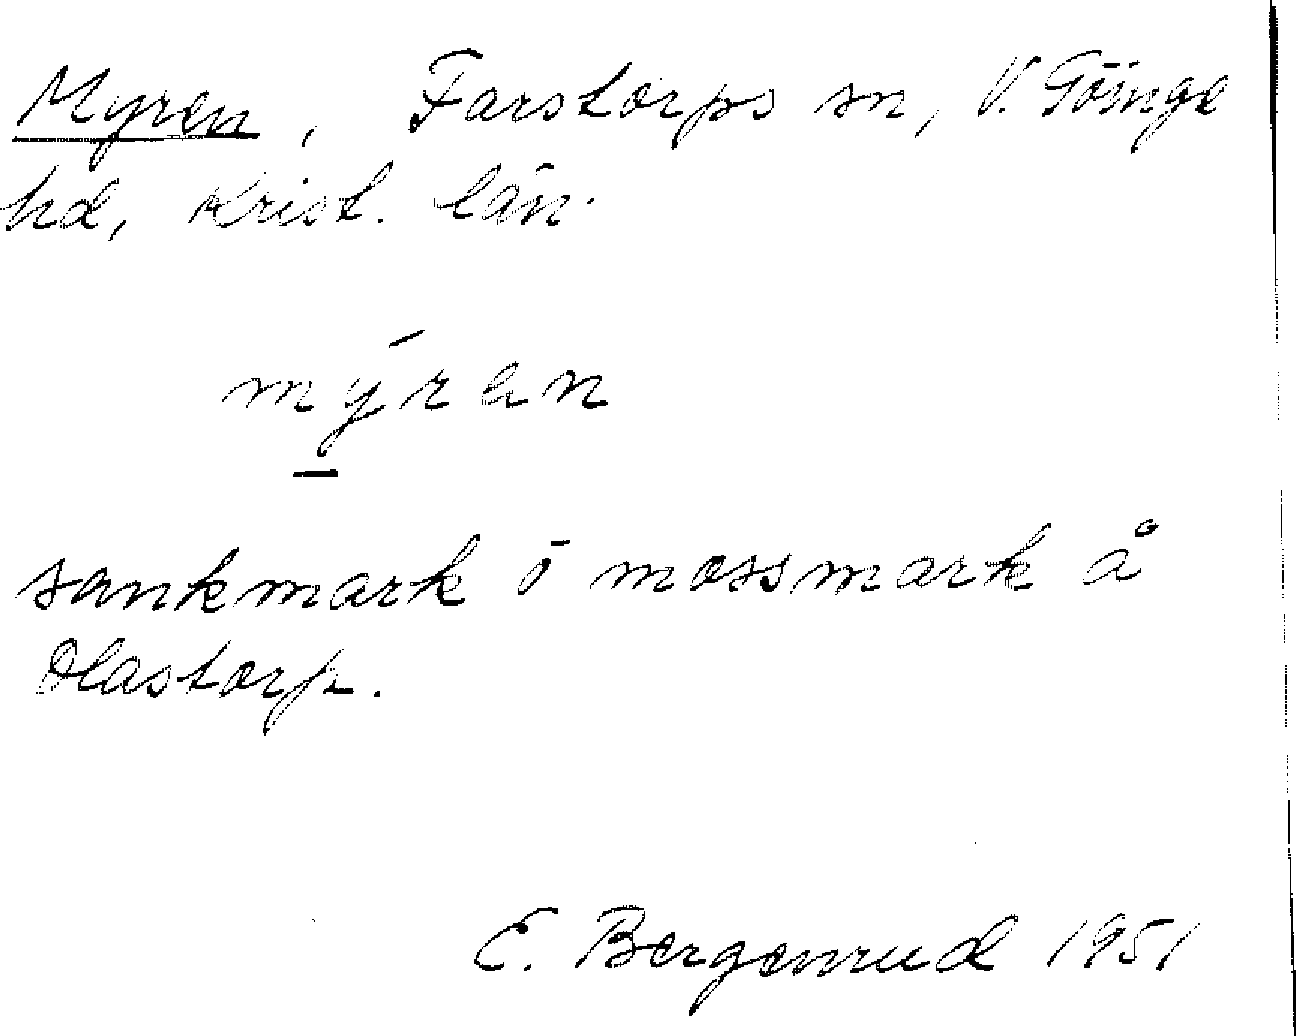 Myren, Farstorps sn, V. Göinge
hd, Krist. län.
mýran
sankmark i mossmark å
Olastorp.
E. Bergenrud 1951